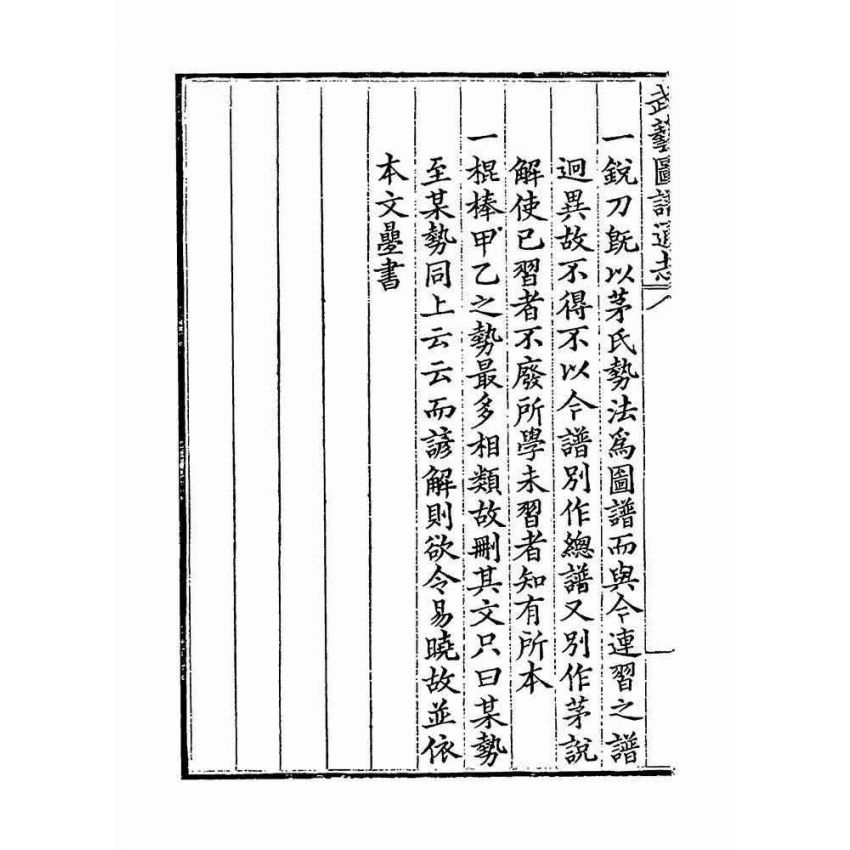 武藝圖譜通志
一銳刀旣以茅氏勢法爲圖譜而與今連習之譜
迥異故不得不以今譜別作總譜又別作茅說
解使已習者不廢所學未習者知有所本
一棍棒甲乙之勢最多相類故刪其文只曰某勢
至某勢同上云云而諺解則欲令易曉故並依
本文疊書